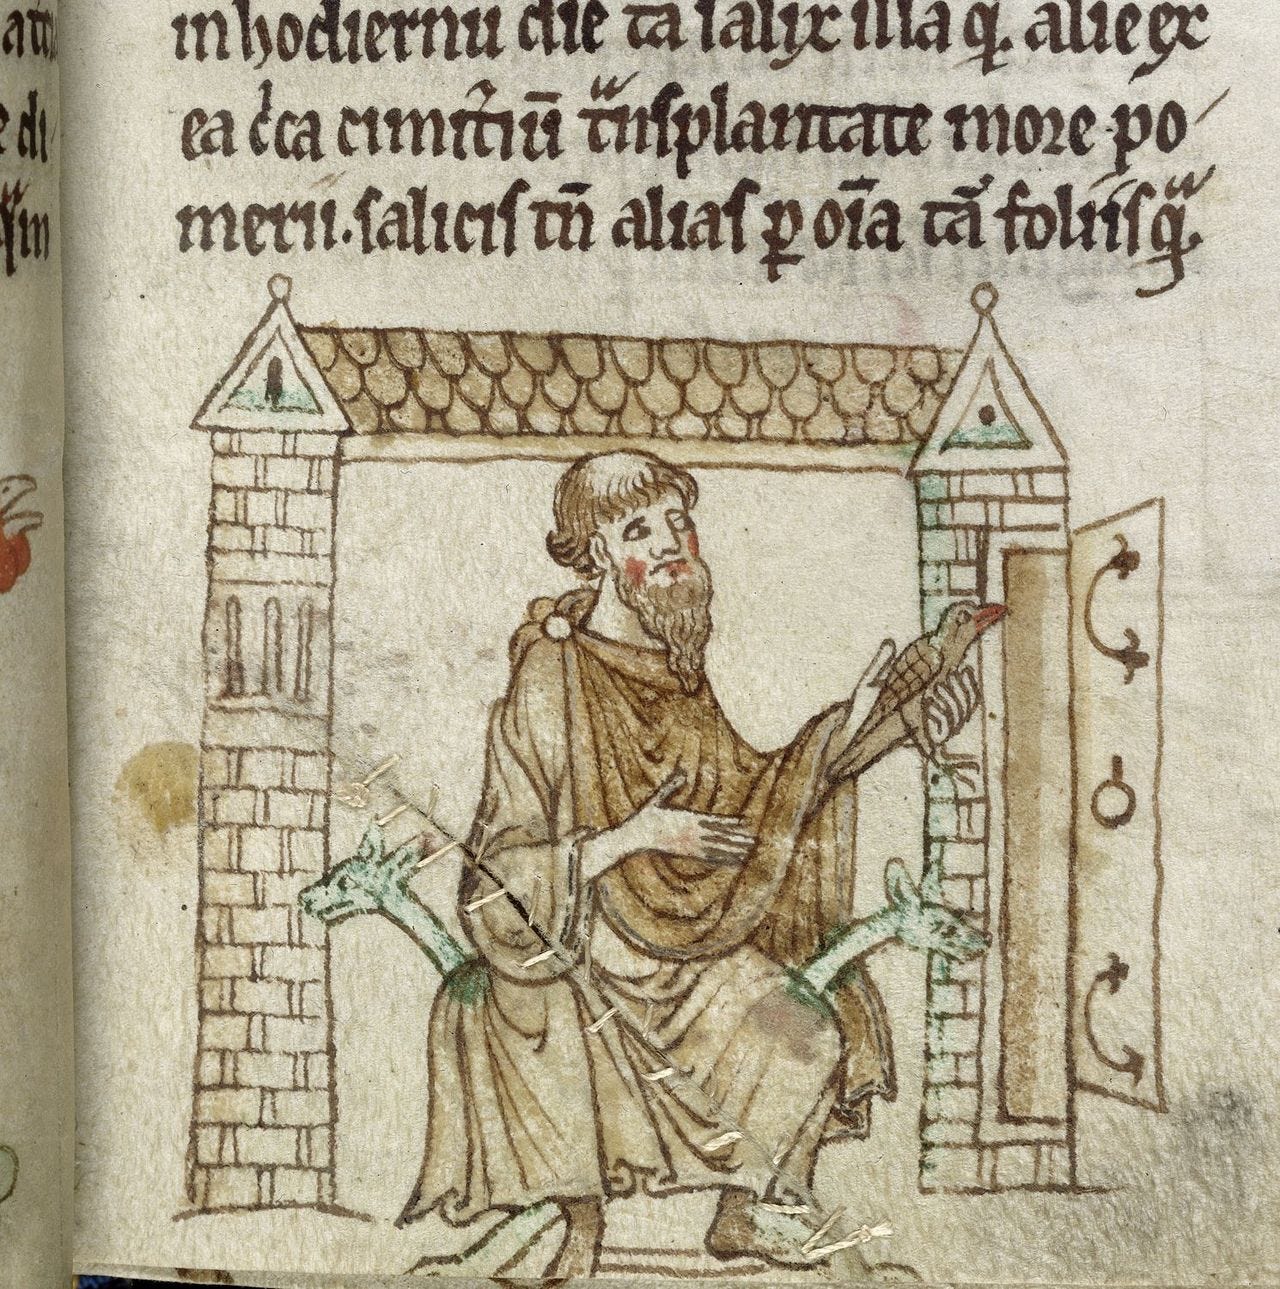 in hodiernū diē tā salix illa q̄. alie ex
ea c̓ca cimit̓iū tͣnsplantate more po
merii. salicis tn̄ alias ꝑ oīa tā foliis qͣ